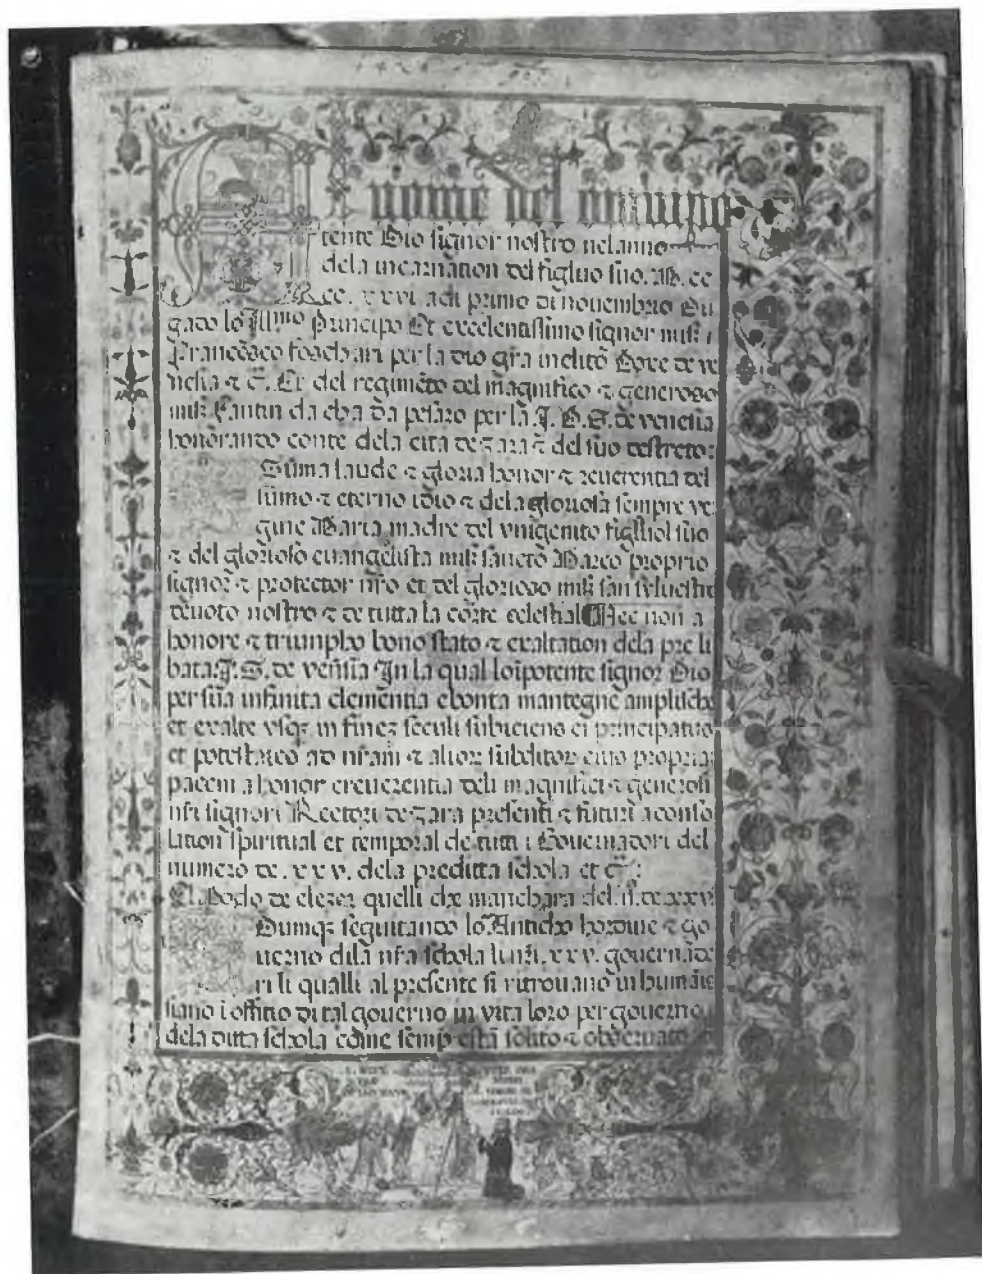 nome del omnipo
tente Dio signor nostro nel anno
dela incarnation del figliuo suo. M. cc
cc. xxvi adi primo di nouembrio Du
gado lo Illmo Principo Et excelentissimo signor miss
Francesco foschari per la dio gra inclito Doxe de ve
nesia ⁊ c. Et del regimēto del magnifico ⁊ generoso
miss fantin da cha da pesaro per la. I. D. S. de venesia
honorando conte dela cita de zara ⁊ del suo destreto:
Suma laude ⁊ gloria honor ⁊ reuerentia del
sumo ⁊ eterno idio ⁊ dela gloriosa sempre ver
gine Maria madre del vnigenito figlliol suo
⁊ del glorioso euangelista miss sancto Marco proprio
signor ⁊ protector nro et del glorioso miss san siluestro
deuoto nostro ⁊ de tutta la corte celestial Nec non a
honore ⁊ triumpho bono stato ⁊ exaltation dela pre li
bata. I. S. de venesia In la qual loipotente signor Dio
per sua infinita clementia e bonta mantegne amplische
et exalte vsq; in finez seculi subiciens ei principatus
et potestates ad nram ⁊ alior subditor eius propria
pacem a honor e reuerentia deli magnifici ⁊ generosi
nri signori Rectori de zara presenti ⁊ futuri a conso
lation spiritual et temporal de tutti i Gouernatori del
numero de. x x v. dela preditta schola et c̄:
El Modo de elezer quelli che manchara del. n. de xxv
Dumq; seguitando lo Anticho hordine ⁊ go
uerno dila nra schola li nri. xxv. gouernado
ri li qualli al presente si ritrouano in
siano i offitio di tal gouerno in vita loro per gouerno
dela ditta schola come semp esta solito ⁊ obseruato